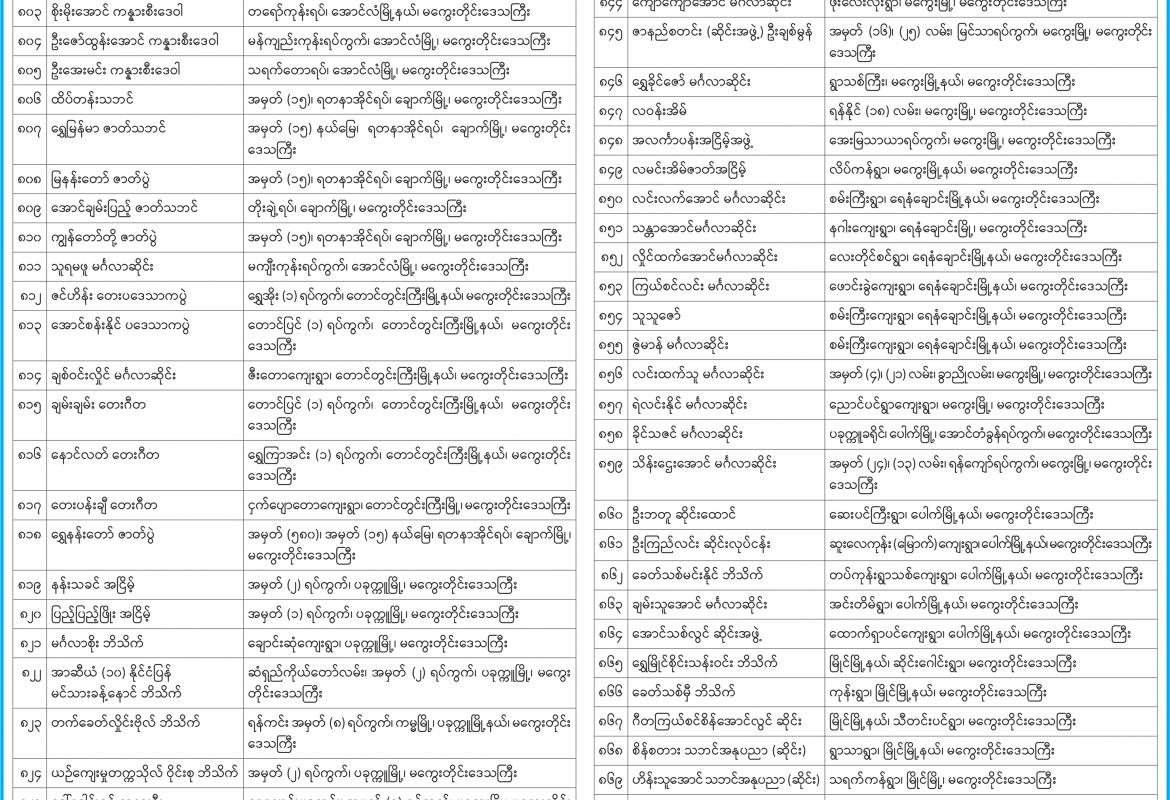 ၈၀၃ စိုးမိုးအောင် ကန္နားစီးဒေဝါ တရော်ကုန်းရပ်၊ အောင်လံမြို့နယ်၊ မကွေးတိုင်းဒေသကြီး
၈၀၄ ဦးဇော်ထွန်းအောင် ကန္နားစီးဒေဝါ မန်ကျည်းကုန်းရပ်ကွက်၊ အောင်လံမြို့၊ မကွေးတိုင်းဒေသကြီး
၈၀၅ ဦးအေးမင်း ကန္နားစီးဒေဝါ သရက်တောရပ်၊ အောင်လံမြို့၊ မကွေးတိုင်းဒေသကြီး
၈၀၆ ထိပ်တန်းသဘင် အမှတ် (၁၅)၊ ရတနာအိုင်ရပ်၊ ချောက်မြို့၊ မကွေးတိုင်းဒေသကြီး
၈၀၇ ရွှေမြန်မာ ဇာတ်သဘင် အမှတ် (၁၅) နယ်မြေ၊ ရတနာအိုင်ရပ်၊ ချောက်မြို့၊ မကွေးတိုင်း
ဒေသကြီး
၈၀၈ မြနန်းတော် ဇာတ်ပွဲ အမှတ် (၁၅)၊ ရတနာအိုင်ရပ်၊ ချောက်မြို့၊ မကွေးတိုင်းဒေသကြီး
၈၀၉ အောင်ချမ်းပြည့် ဇာတ်သဘင် တိုးချဲ့ရပ်၊ ချောက်မြို့၊ မကွေးတိုင်းဒေသကြီး
၈၁၀ ကျွန်တော်တို့ ဇာတ်ပွဲ အမှတ် (၁၅)၊ ရတနာအိုင်ရပ်၊ ချောက်မြို့၊ မကွေးတိုင်းဒေသကြီး
၈၁၁ သူရမဖူ မင်္ဂလာဆိုင်း မကျီးကုန်းရပ်ကွက်၊ အောင်လံမြို့၊ မကွေးတိုင်းဒေသကြီး
၈၁၂ ဇင်ဟိန်း တေးပဒေသာကပွဲ ရွှေအိုး (၁) ရပ်ကွက်၊ တောင်တွင်းကြီးမြို့နယ်၊ မကွေးတိုင်းဒေသကြီး
၈၁၃ အောင်စန်းနိုင် ပဒေသာကပွဲ တောင်ပြင် (၁) ရပ်ကွက်၊ တောင်တွင်းကြီးမြို့နယ်၊ မကွေးတိုင်း
ဒေသကြီး
၈၁၄ ချစ်ဝင်းလှိုင် မင်္ဂလာဆိုင်း ဇီးတောကျေးရွာ၊ တောင်တွင်းကြီးမြို့နယ်၊ မကွေးတိုင်းဒေသကြီး
၈၁၅ ချမ်းချမ်း တေးဂီတ တောင်ပြင် (၁) ရပ်ကွက်၊ တောင်တွင်းကြီးမြို့နယ်၊ မကွေးတိုင်း
ဒေသကြီး
၈၁၆ နောင်လတ် တေးဂီတ ရွှေကြာအင်း (၁) ရပ်ကွက်၊ တောင်တွင်းကြီးမြို့နယ်၊ မကွေးတိုင်း
ဒေသကြီး
၈၁၇ တေးပန်းချီ တေးဂီတ ငှက်ပျောတောကျေးရွာ၊ တောင်တွင်းကြီးမြို့၊ မကွေးတိုင်းဒေသကြီး
၈၁၈ ရွှေနန်းတော် ဇာတ်ပွဲ အမှတ် (၅၈၀)၊ အမှတ် (၁၅) နယ်မြေ၊ ရတနာအိုင်ရပ်၊ ချောက်မြို့၊
မကွေးတိုင်းဒေသကြီး
၈၁၉ နန်းသခင် အငြိမ့် အမှတ် (၂) ရပ်ကွက်၊ ပခုက္ကူမြို့၊ မကွေးတိုင်းဒေသကြီး
၈၂၀ ပြည့်ပြည့်ဖြိုး အငြိမ့် အမှတ် (၁) ရပ်ကွက်၊ ပခုက္ကူမြို့၊ မကွေးတိုင်းဒေသကြီး
၈၂၁ မင်္ဂလာစိုး ဘိသိက် ချောင်းဆုံကျေးရွာ၊ ပခုက္ကူမြို့၊ မကွေးတိုင်းဒေသကြီး
၈၂၂ အာဆီယံ (၁၀) နိုင်ငံပြန် ဆံရှည်ကိုယ်တော်လမ်း၊ အမှတ် (၂) ရပ်ကွက်၊ ပခုက္ကူမြို့၊ မကွေး
မင်သားခန့်နောင် ဘိသိက် တိုင်းဒေသကြီး
၈၂၃ တက်ခေတ်လှိုင်းဗိုလ် ဘိသိက် ရန်ကင်း အမှတ် (၈) ရပ်ကွက်၊ ကမ္မမြို့၊ ပခုက္ကူမြို့နယ်၊ မကွေးတိုင်း
ဒေသကြီး
၈၂၄ ယဉ်ကျေးမှုတက္ကသိုလ် ဝိုင်းစု ဘိသိက် အမှတ် (၂) ရပ်ကွက်၊ ပခုက္ကူမြို့၊ မကွေးတိုင်းဒေသကြီး
၈၄၄ ကျော်ကျော်အောင် မင်္ဂလာဆိုင်း ဖုံးလေးလုံးရွာ၊ မကွေးမြို့၊ မကွေးတိုင်းဒေသကြီး
၈၄၅ ဇာနည်စတင်း (ဆိုင်းအဖွဲ့) ဦးချစ်မွန် အမှတ် (၁၆)၊ (၂၅) လမ်း၊ မြင်သာရပ်ကွက်၊ မကွေးမြို့၊ မကွေးတိုင်း
ဒေသကြီး
၈၄၆ ရွှေခိုင်ဇော် မင်္ဂလာဆိုင်း ရွာသစ်ကြီး၊ မကွေးမြို့နယ်၊ မကွေးတိုင်းဒေသကြီး
၈၄၇ လဝန်းအိမ် ရန်နိုင် (၁၈) လမ်း၊ မကွေးမြို့၊ မကွေးတိုင်းဒေသကြီး
၈၄၈ အလင်္ကာပန်းအငြိမ့်အဖွဲ့ အေးမြသာယာရပ်ကွက်၊ မကွေးမြို့၊ မကွေးတိုင်းဒေသကြီး
၈၄၉ လမင်းအိမ်ဇာတ်အငြိမ့် လိပ်ကန်ရွာ၊ မကွေးမြို့နယ်၊ မကွေးတိုင်းဒေသကြီး
၈၅၀ လင်းလက်အောင် မင်္ဂလာဆိုင်း စမ်းကြီးရွာ၊ ရေနံချောင်းမြို့နယ်၊ မကွေးတိုင်းဒေသကြီး
၈၅၁ သန္တာအောင်မင်္ဂလာဆိုင်း နဂါးကျေးရွာ၊ ရေနံချောင်းမြို့၊ မကွေးတိုင်းဒေသကြီး
၈၅၂ လှိုင်ထက်အောင်မင်္ဂလာဆိုင်း လေးတိုင်စင်ရွာ၊ ရေနံချောင်းမြို့နယ်၊ မကွေးတိုင်းဒေသကြီး
၈၅၃ ကြယ်စင်လင်း မင်္ဂလာဆိုင်း ဖောင်းခွဲကျေးရွာ၊ ရေနံချောင်းမြို့နယ်၊ မကွေးတိုင်းဒေသကြီး
၈၅၄ သူသူဇော် စမ်းကြီးကျေးရွာ၊ ရေနံချောင်းမြို့နယ်၊ မကွေးတိုင်းဒေသကြီး
၈၅၅ ဇွဲမာန် မင်္ဂလာဆိုင်း စမ်းကြီးကျေးရွာ၊ ရေနံချောင်းမြို့နယ်၊ မကွေးတိုင်းဒေသကြီး
၈၅၆ လင်းထက်သူ မင်္ဂလာဆိုင်း အမှတ် (၄)၊ (၂၁) လမ်း၊ ခွာညိုလမ်း၊ မကွေးမြို့၊ မကွေးတိုင်းဒေသကြီး
၈၅၇ ရဲလင်းနိုင် မင်္ဂလာဆိုင်း ညောင်ပင်ရွာကျေးရွာ၊ မကွေးမြို့၊ မကွေးတိုင်းဒေသကြီး
၈၅၈ ခိုင်သဇင် မင်္ဂလာဆိုင်း ပခုက္ကူခရိုင်၊ ပေါက်မြို့၊ အောင်တံခွန်ရပ်ကွက်၊ မကွေးတိုင်းဒေသကြီး
၈၅၉ သိန်းဌေးအောင် မင်္ဂလာဆိုင်း အမှတ် (၂၄)၊ (၁၃) လမ်း၊ ရန်ကျော်ရပ်ကွက်၊ မကွေးမြို့၊ မကွေးတိုင်း
ဒေသကြီး
၈၆၀ ဦးဘတူ ဆိုင်းထောင် ဆေးပင်ကြီးရွာ၊ ပေါက်မြို့နယ်၊ မကွေးတိုင်းဒေသကြီး
၈၆၁ ဦးကြည်လင်း ဆိုင်းလုပ်ငန်း ဆူးလေကုန်း (မြောက်) ကျေးရွာ၊ ပေါက်မြို့နယ်၊ မကွေးတိုင်းဒေသကြီး
၈၆၂ ခေတ်သစ်မင်းနိုင် ဘိသိက် တပ်ကုန်းရွာသစ်ကျေးရွာ၊ ပေါက်မြို့နယ်၊ မကွေးတိုင်းဒေသကြီး
၈၆၃ ချမ်းသူအောင် မင်္ဂလာဆိုင်း အင်းတိမ်ရွာ၊ ပေါက်မြို့နယ်၊ မကွေးတိုင်းဒေသကြီး
၈၆၄ အောင်သစ်လွင် ဆိုင်းအဖွဲ့ ထောက်ရှာပင်ကျေးရွာ၊ ပေါက်မြို့နယ်၊ မကွေးတိုင်းဒေသကြီး
၈၆၅ ရွှေမြိုင်စိုင်းသန်းဝင်း ဘိသိက် မြိုင်မြို့နယ်၊ ဆိုင်းဂေါင်းရွာ၊ မကွေးတိုင်းဒေသကြီး
၈၆၆ ခေတ်သစ်မှီ ဘိသိက် ကုန်းရွာ၊ မြိုင်မြို့နယ်၊ မကွေးတိုင်းဒေသကြီး
၈၆၇ ဂီတကြယ်စင်စိန်အောင်လွင် ဆိုင်း မြိုင်မြို့နယ်၊ သီတင်းပင်ရွာ၊ မကွေးတိုင်းဒေသကြီး
၈၆၈ စိန်စတား သဘင်အနုပညာ (ဆိုင်း) ရွာသာရွာ၊ မြိုင်မြို့နယ်၊ မကွေးတိုင်းဒေသကြီး
၈၆၉ ဟိန်းသူအောင် သဘင်အနုပညာ (ဆိုင်း) သရက်ကန်ရွာ၊ မြိုင်မြို့၊ မကွေးတိုင်းဒေသကြီး